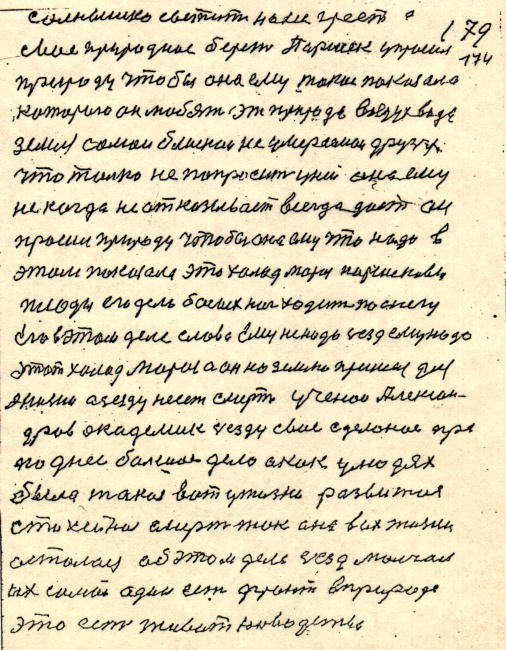 солнышко светит но не греет
179
174
свое природное берет Паршек упросил
природу чтобы она ему такое показала
которого он любят эти природа воздух вода
земля самаи близкаи не умераемаи друзя
что толко не попросит уней она ему
не когда не отказывает всегда дает он
просил природу чтобы она ему что надо в
этом показала это холад мороз
люди его дель босых ног ходит по снегу
слов этом деле слова ему ненадо сезд ему надо
этот холад мороз а он на землю принес для
жизни а сезду несет смерть ученое Алексан-
дров академик сезду свое сделоное
по днее болшое дело а как улюдях
была такая вот ужизни развитая
стихейна смерт так она в их жизни
осталас об этом деле сезд молчал
их самое адин ест фронт в природе
это ест живот